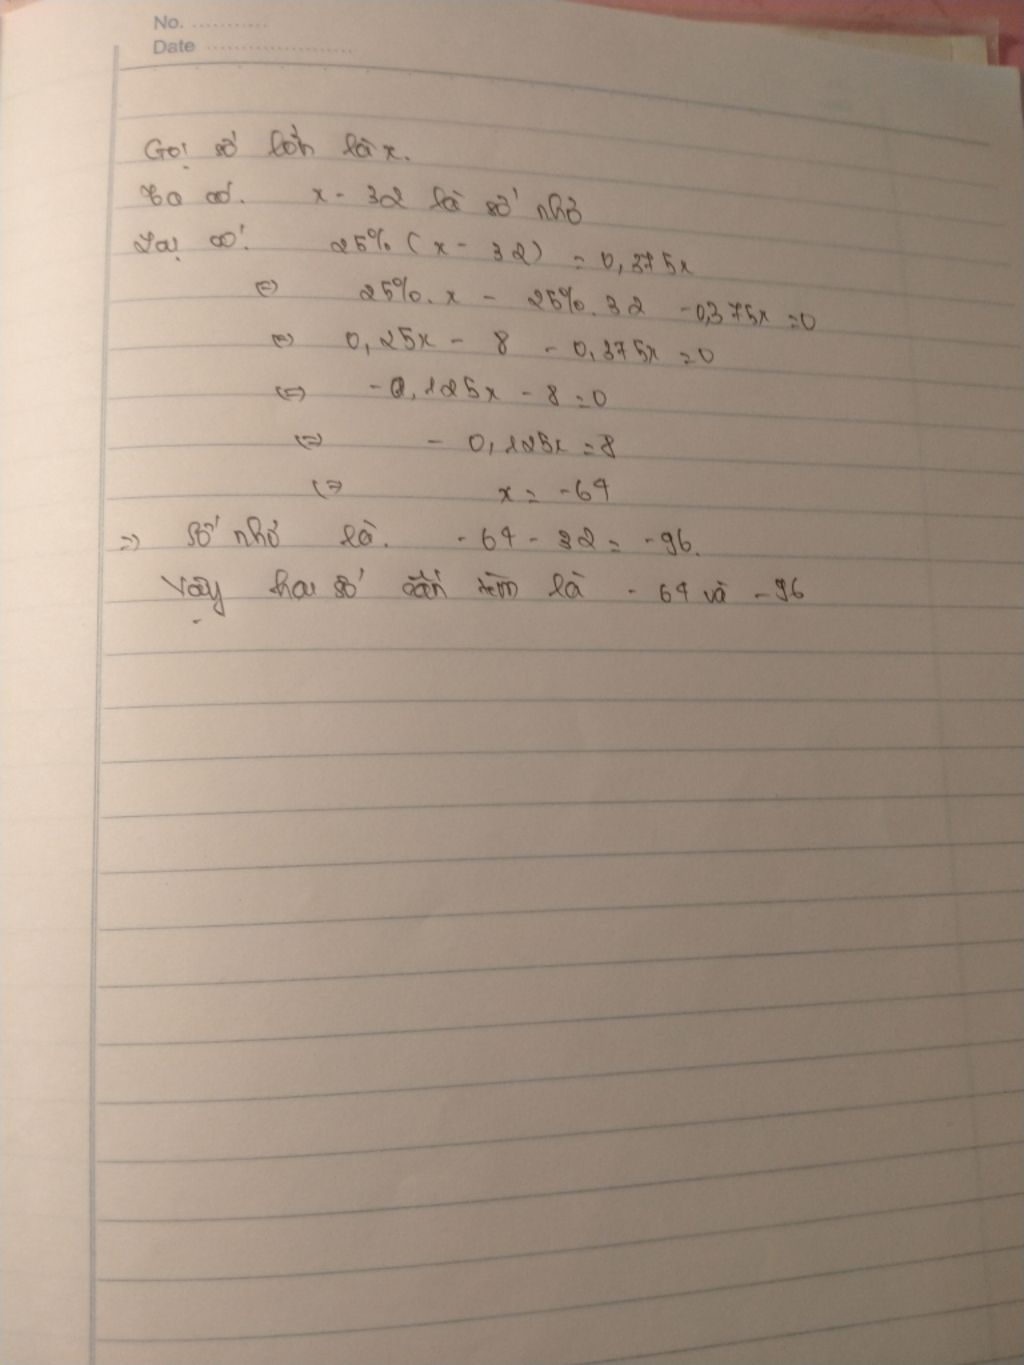 No. ...........
Date .....................
Gọi số lớn là x.
Ta có. x - 32 là số nhỏ
Lại có. 25% (x - 32) = 0,375x
⇔ 25%. x - 25%. 32 - 0,375x = 0
⇔ 0,25x - 8 - 0,375x = 0
⇔ - 0,125x - 8 = 0
⇔ - 0,125x = 8
⇔ x = -64
⇒ số nhỏ là. - 64 - 32 = -96.
Vậy hai số cần tìm là - 64 và - 96